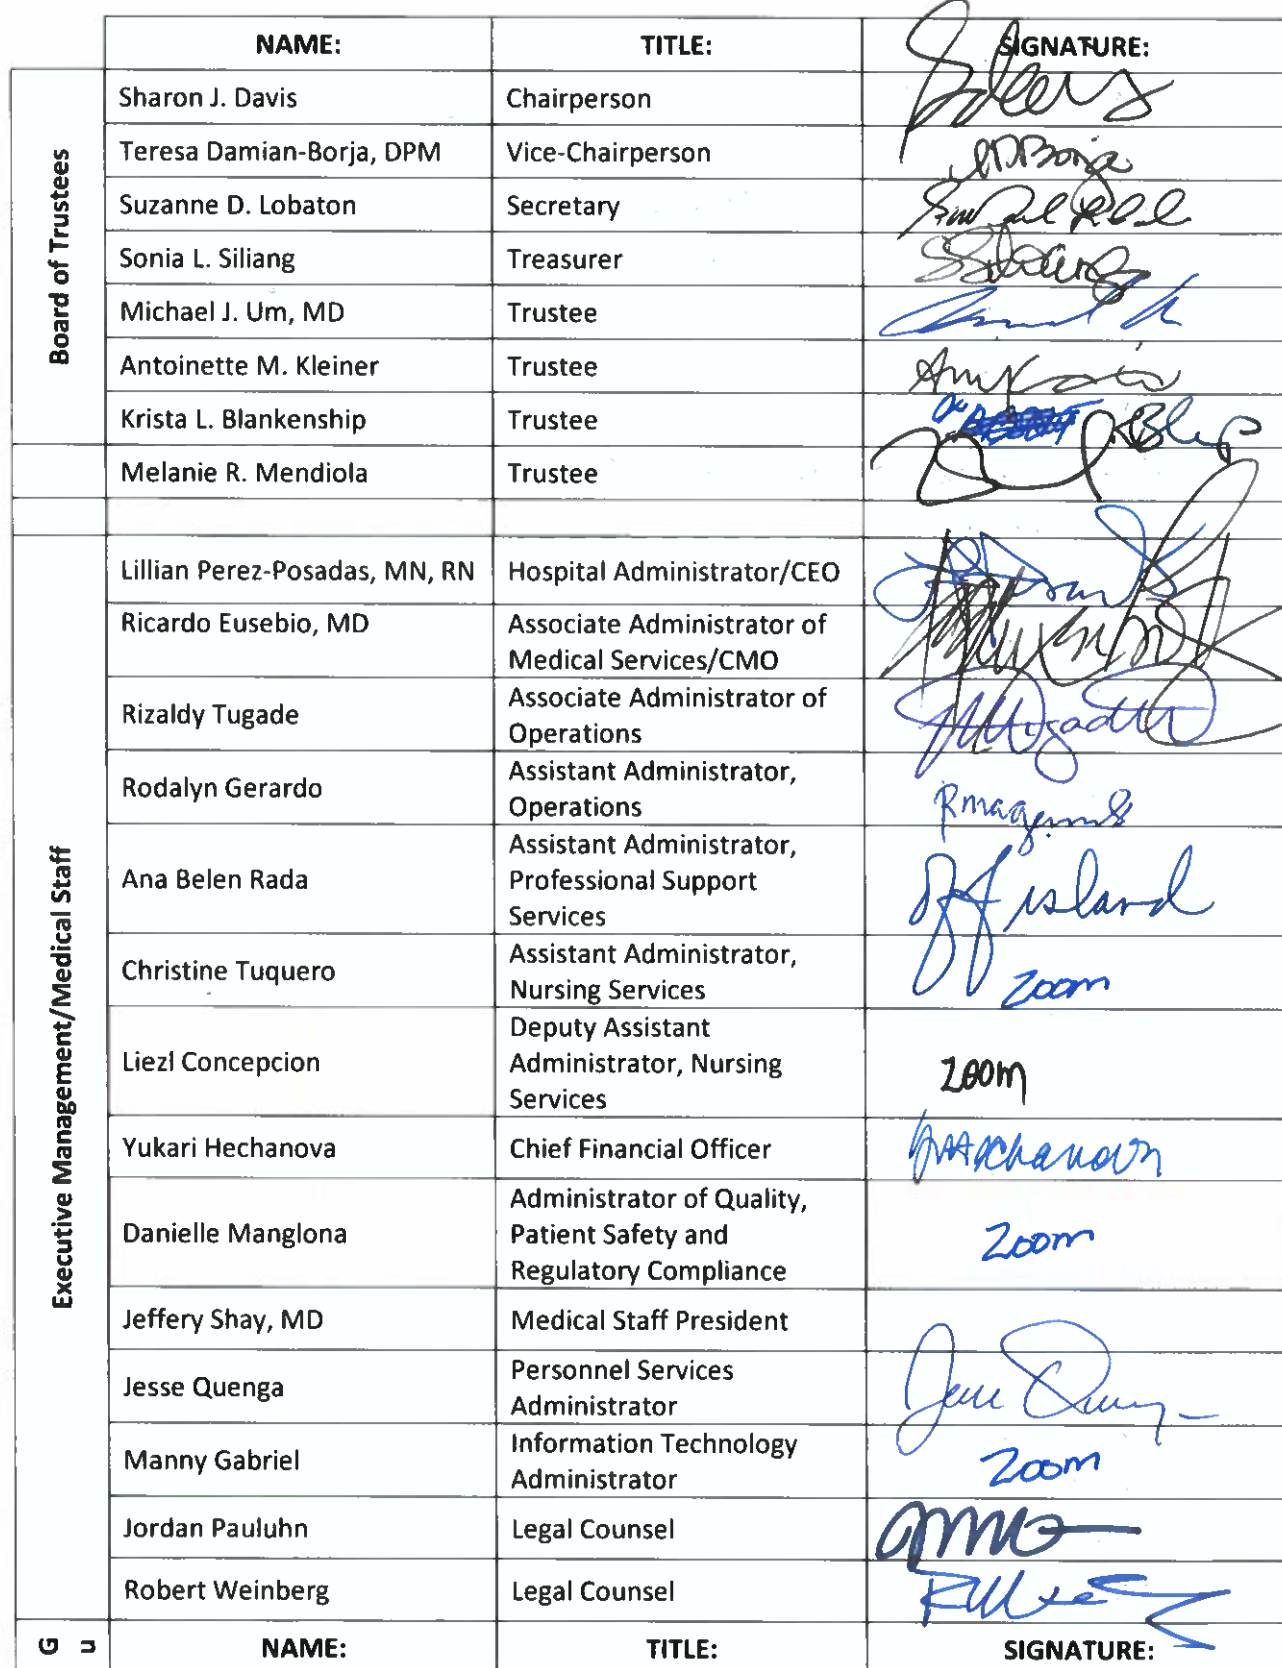 NAME: TITLE: SIGNATURE:
Board of Trustees
Sharon J. Davis Chairperson
Teresa Damian-Borja, DPM Vice-Chairperson
Suzanne D. Lobaton Secretary
Sonia L. Siliang Treasurer
Michael J. Um, MD Trustee
Antoinette M. Kleiner Trustee
Krista L. Blankenship Trustee
Melanie R. Mendiola Trustee
Executive Management/Medical Staff
Lillian Perez-Posadas, MN, RN Hospital Administrator/CEO
Ricardo Eusebio, MD Associate Administrator of
Medical Services/CMO
Rizaldy Tugade Associate Administrator of
Operations
Rodalyn Gerardo Assistant Administrator,
Operations
Ana Belen Rada Assistant Administrator,
Professional Support
Services
island
Christine Tuquero Assistant Administrator,
Nursing Services
Zoom
Liezl Concepcion Deputy Assistant
Administrator, Nursing
Services
Zoom
Yukari Hechanova Chief Financial Officer
Danielle Manglona Administrator of Quality,
Patient Safety and
Regulatory Compliance
Zoom
Jeffery Shay, MD Medical Staff President
Jesse Quenga Personnel Services
Administrator
Manny Gabriel Information Technology
Administrator
Zoom
Jordan Pauluhn Legal Counsel
Robert Weinberg Legal Counsel
G u NAME: TITLE: SIGNATURE: